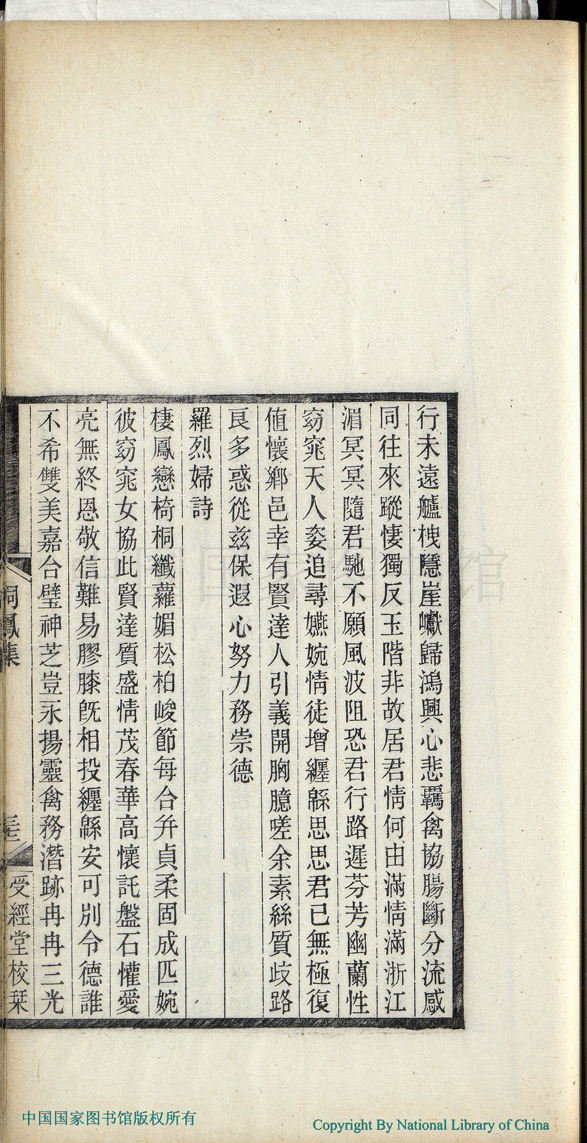 行未遠艫栧隱崖巘歸鴻興心悲覊禽協腸斷分流感
同往來蹤悽獨反玉階非故居君情何由滿情滿浙江
湄冥冥隨君馳不願風波阻恐君行路遲芬芳幽蘭性
窈窕天人姿追尋嬿婉情徒增纏緜思思君已無極復
値懷鄉邑幸有賢達人引義開胸臆嗟余素絲質歧路
良多惑從兹保遐心努力務崇德
羅烈婦詩
棲鳳戀椅桐纖蘿媚松柏峻節每合并貞柔固成匹婉
彼窈窕女協此賢達質盛情茂春華高懷託盤石懽愛
亮無終恩敬信難易膠膝旣相投纏緜安可別令德誰
不希雙美嘉合璧神芝豈永揚靈禽務潛跡冉冉三光
桐鳳集
三
受經堂校栞
中国国家图书馆
中国国家图书馆版权所有
Copyright By National Library of China